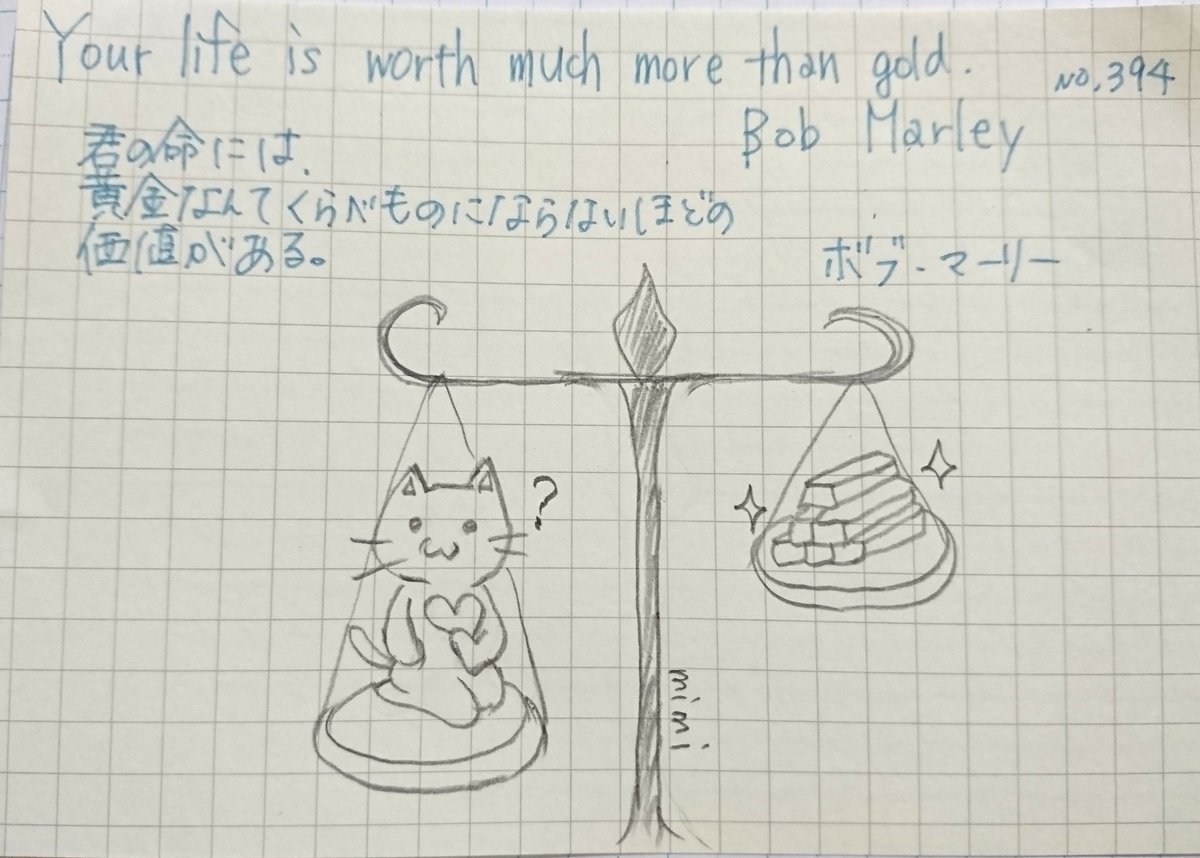 Your life is worth much more than gold.
NO.394
Bob Marley
君の命には、
黄金なんてくらべものにならないほどの
価値がある。
ボブ・マーリー
?
mimi